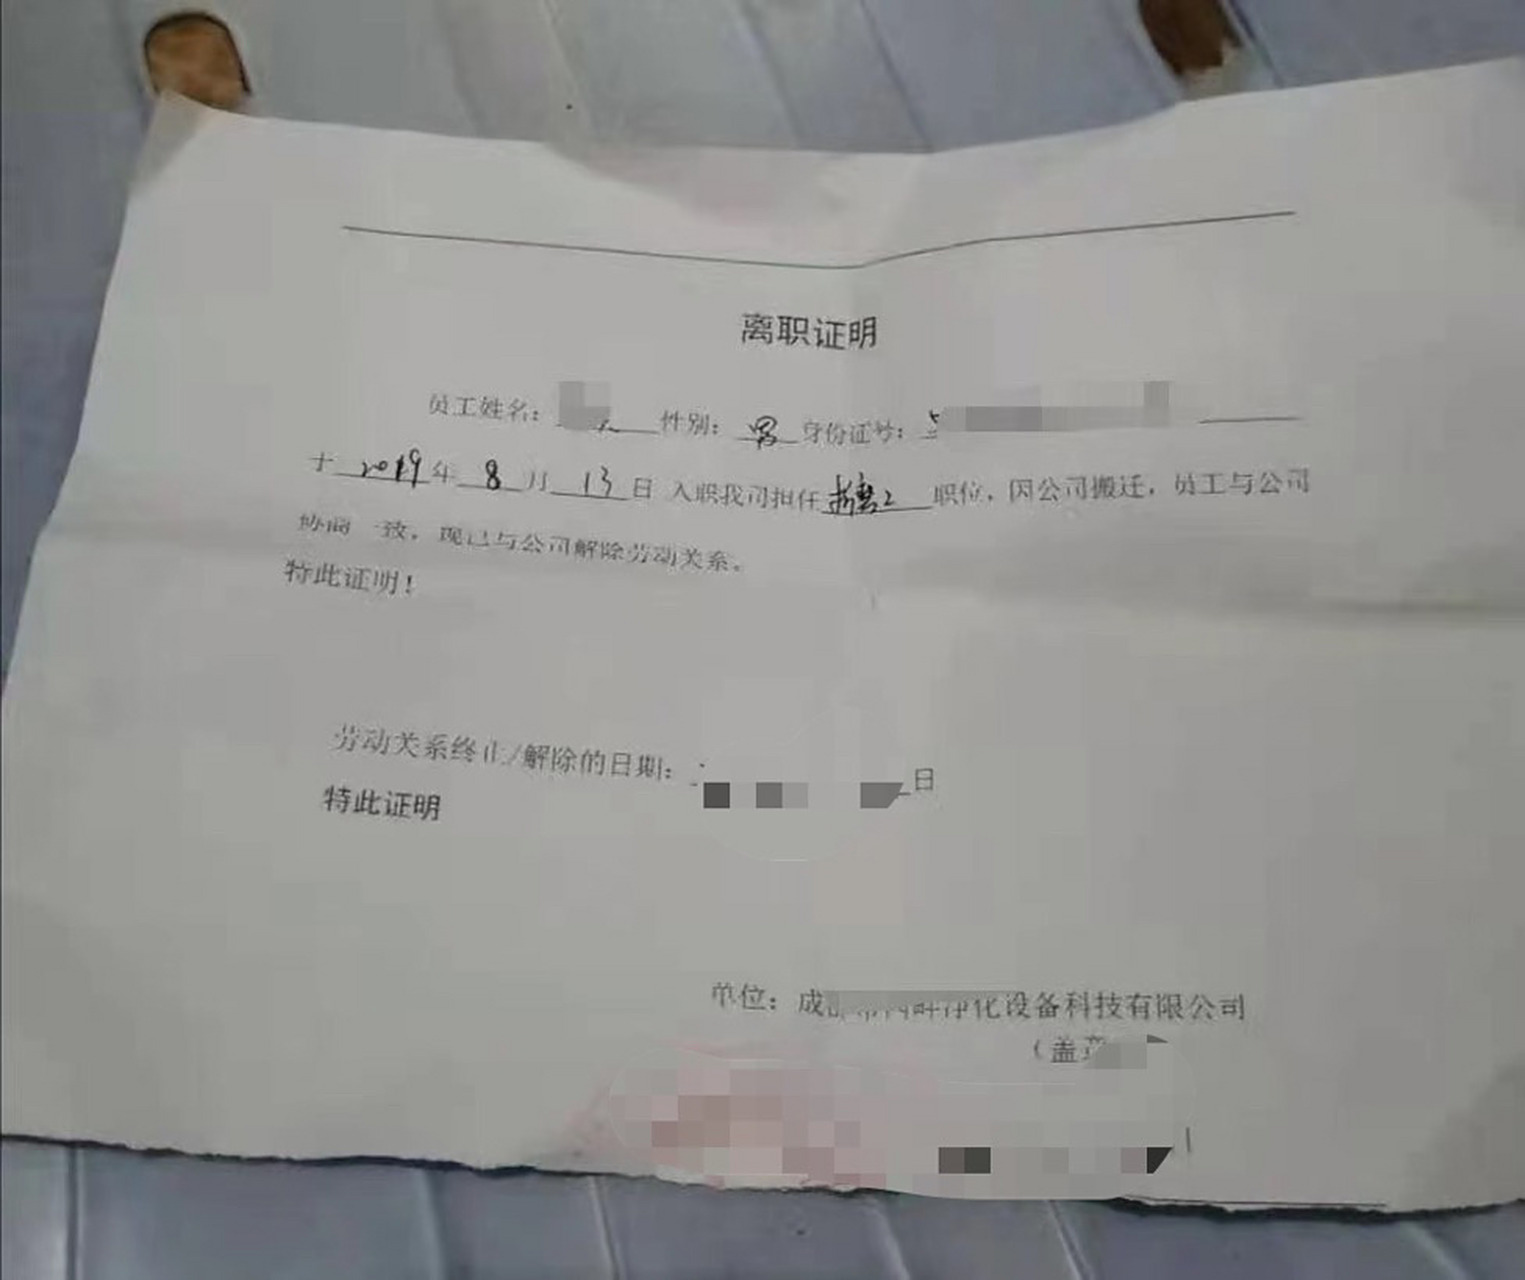 离职证明
员工姓名： 性别：男 身份证号：
于2019年8月13日 入职我司担任 职位，因公司搬迁，员工与公司
协商一致，现已与公司解除劳动关系。
特此证明！
劳动关系终止/解除的日期： 日
特此证明
单位：成 净化设备科技有限公司
（盖章